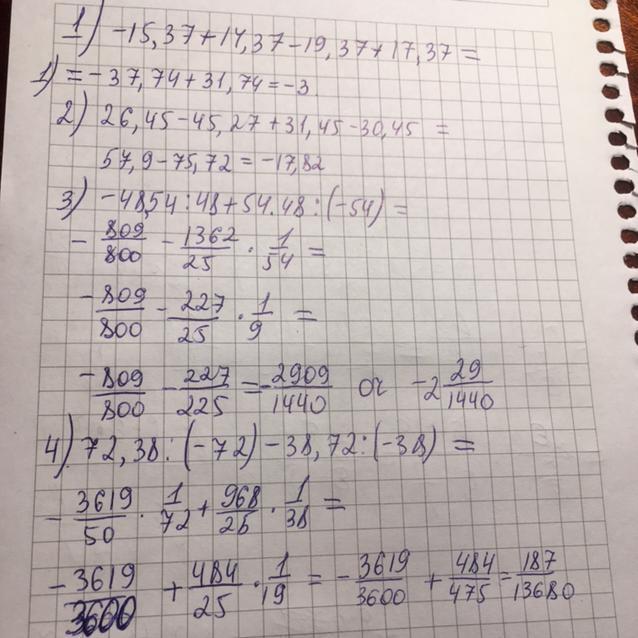 1) -15,37+14,37-19,37+17,37=
1) =-37,74+31,74=-3
2) 26,45-45,27+31,45-30,45 =
57,9-75,72=-17,82
3) -48,54:48+54.48:(-54)=
-809/800 - 1362/25 · 1/54 =
-809/800 - 227/25 · 1/9 =
-809/800 - 227/225 = -2909/1440 or -2 29/1440
4) 72,38:(-72)-38,72:(-38) =
-3619/50 · 1/72 + 968/25 · 1/38 =
-3619/3600 + 484/25 · 1/19 = -3619/3600 + 484/475 = 187/13680